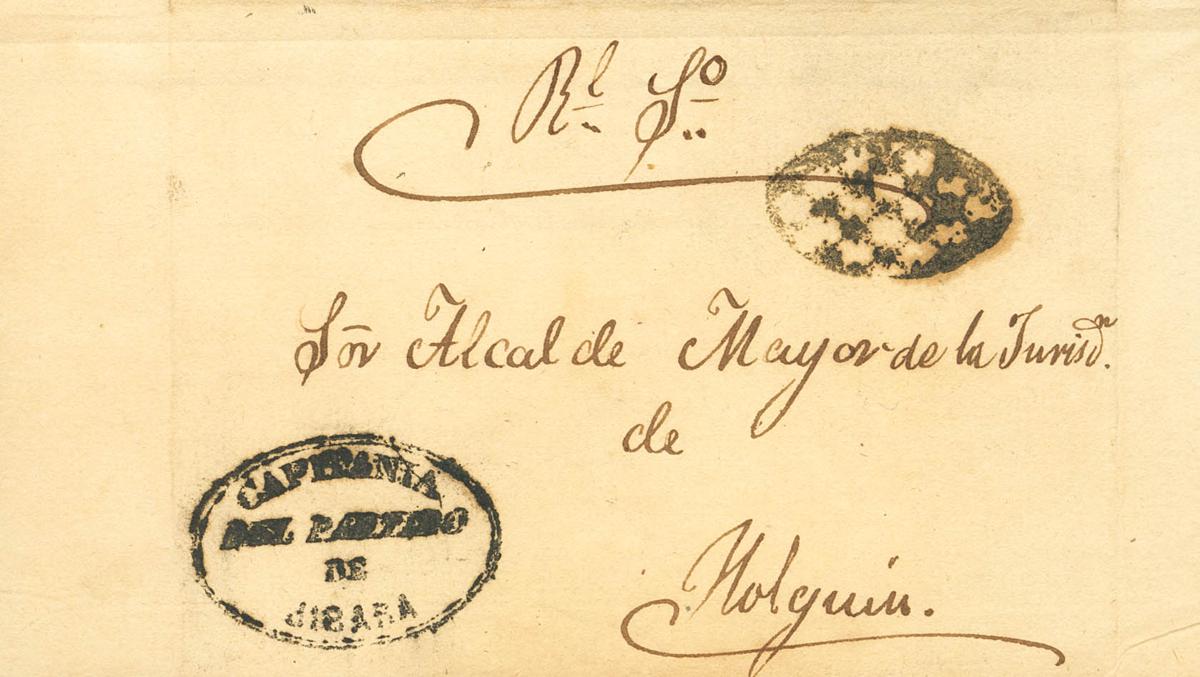 Rl. So.
Sōr Alcalde Mayor de la Jurisdn.
de
Holguin.
CAPITANIA
DEL PARTIDO
DE
JIBARA